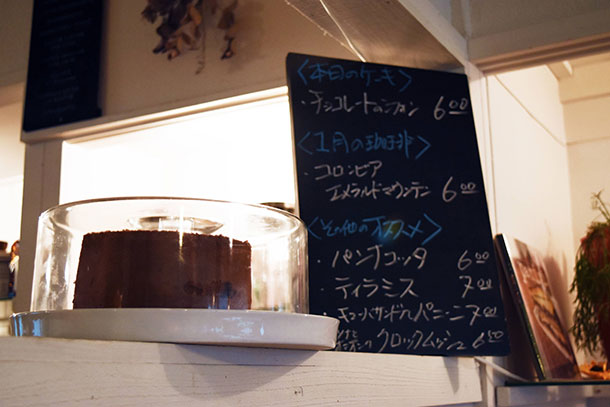 〈本日のケーキ〉
・チョコレートシフォン 600
〈1月の珈琲〉
・コロンビア
エメラルドマウンテン 600
〈その他のオススメ〉
・パンナコッタ 600
・ティラミス 700
・キューバサンド パニーニ 700
クロックムッシュ 650